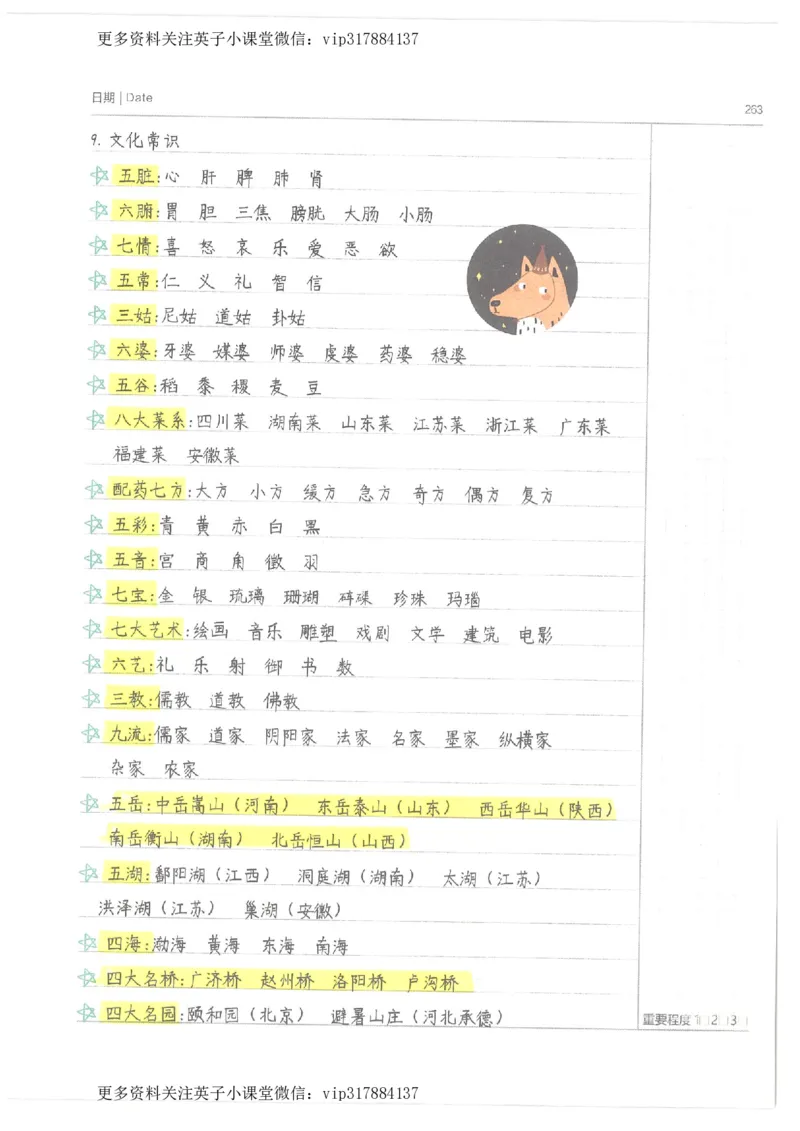 更多资料关注英子小课堂微信：vip317884137
日期 | Date
263
9. 文化常识
五脏:心 肝 脾 肺 肾
六腑:胃 胆 三焦 膀胱 大肠 小肠
七情:喜 怒 哀 乐 爱 恶 欲
五常:仁 义 礼 智 信
三姑:尼姑 道姑 卦姑
六婆:牙婆 媒婆 师婆 虔婆 药婆 稳婆
五谷:稻 黍 稷 麦 豆
八大菜系:四川菜 湖南菜 山东菜 江苏菜 浙江菜 广东菜
福建菜 安徽菜
配药七方:大方 小方 缓方 急方 奇方 偶方 复方
五彩:青 黄 赤 白 黑
五音:宫 商 角 徵 羽
七宝:金 银 琉璃 珊瑚 砗磲 珍珠 玛瑙
七大艺术:绘画 音乐 雕塑 戏剧 文学 建筑 电影
六艺:礼 乐 射 御 书 数
三教:儒教 道教 佛教
九流:儒家 道家 阴阳家 法家 名家 墨家 纵横家
杂家 农家
五岳:中岳嵩山（河南） 东岳泰山（山东） 西岳华山（陕西）
南岳衡山（湖南） 北岳恒山（山西）
五湖:鄱阳湖（江西） 洞庭湖（湖南） 太湖（江苏）
洪泽湖（江苏） 巢湖（安徽）
四海:渤海 黄海 东海 南海
四大名桥:广济桥 赵州桥 洛阳桥 卢沟桥
四大名园:颐和园（北京） 避暑山庄（河北承德）
重要程度 1 2 3
更多资料关注英子小课堂微信：vip317884137